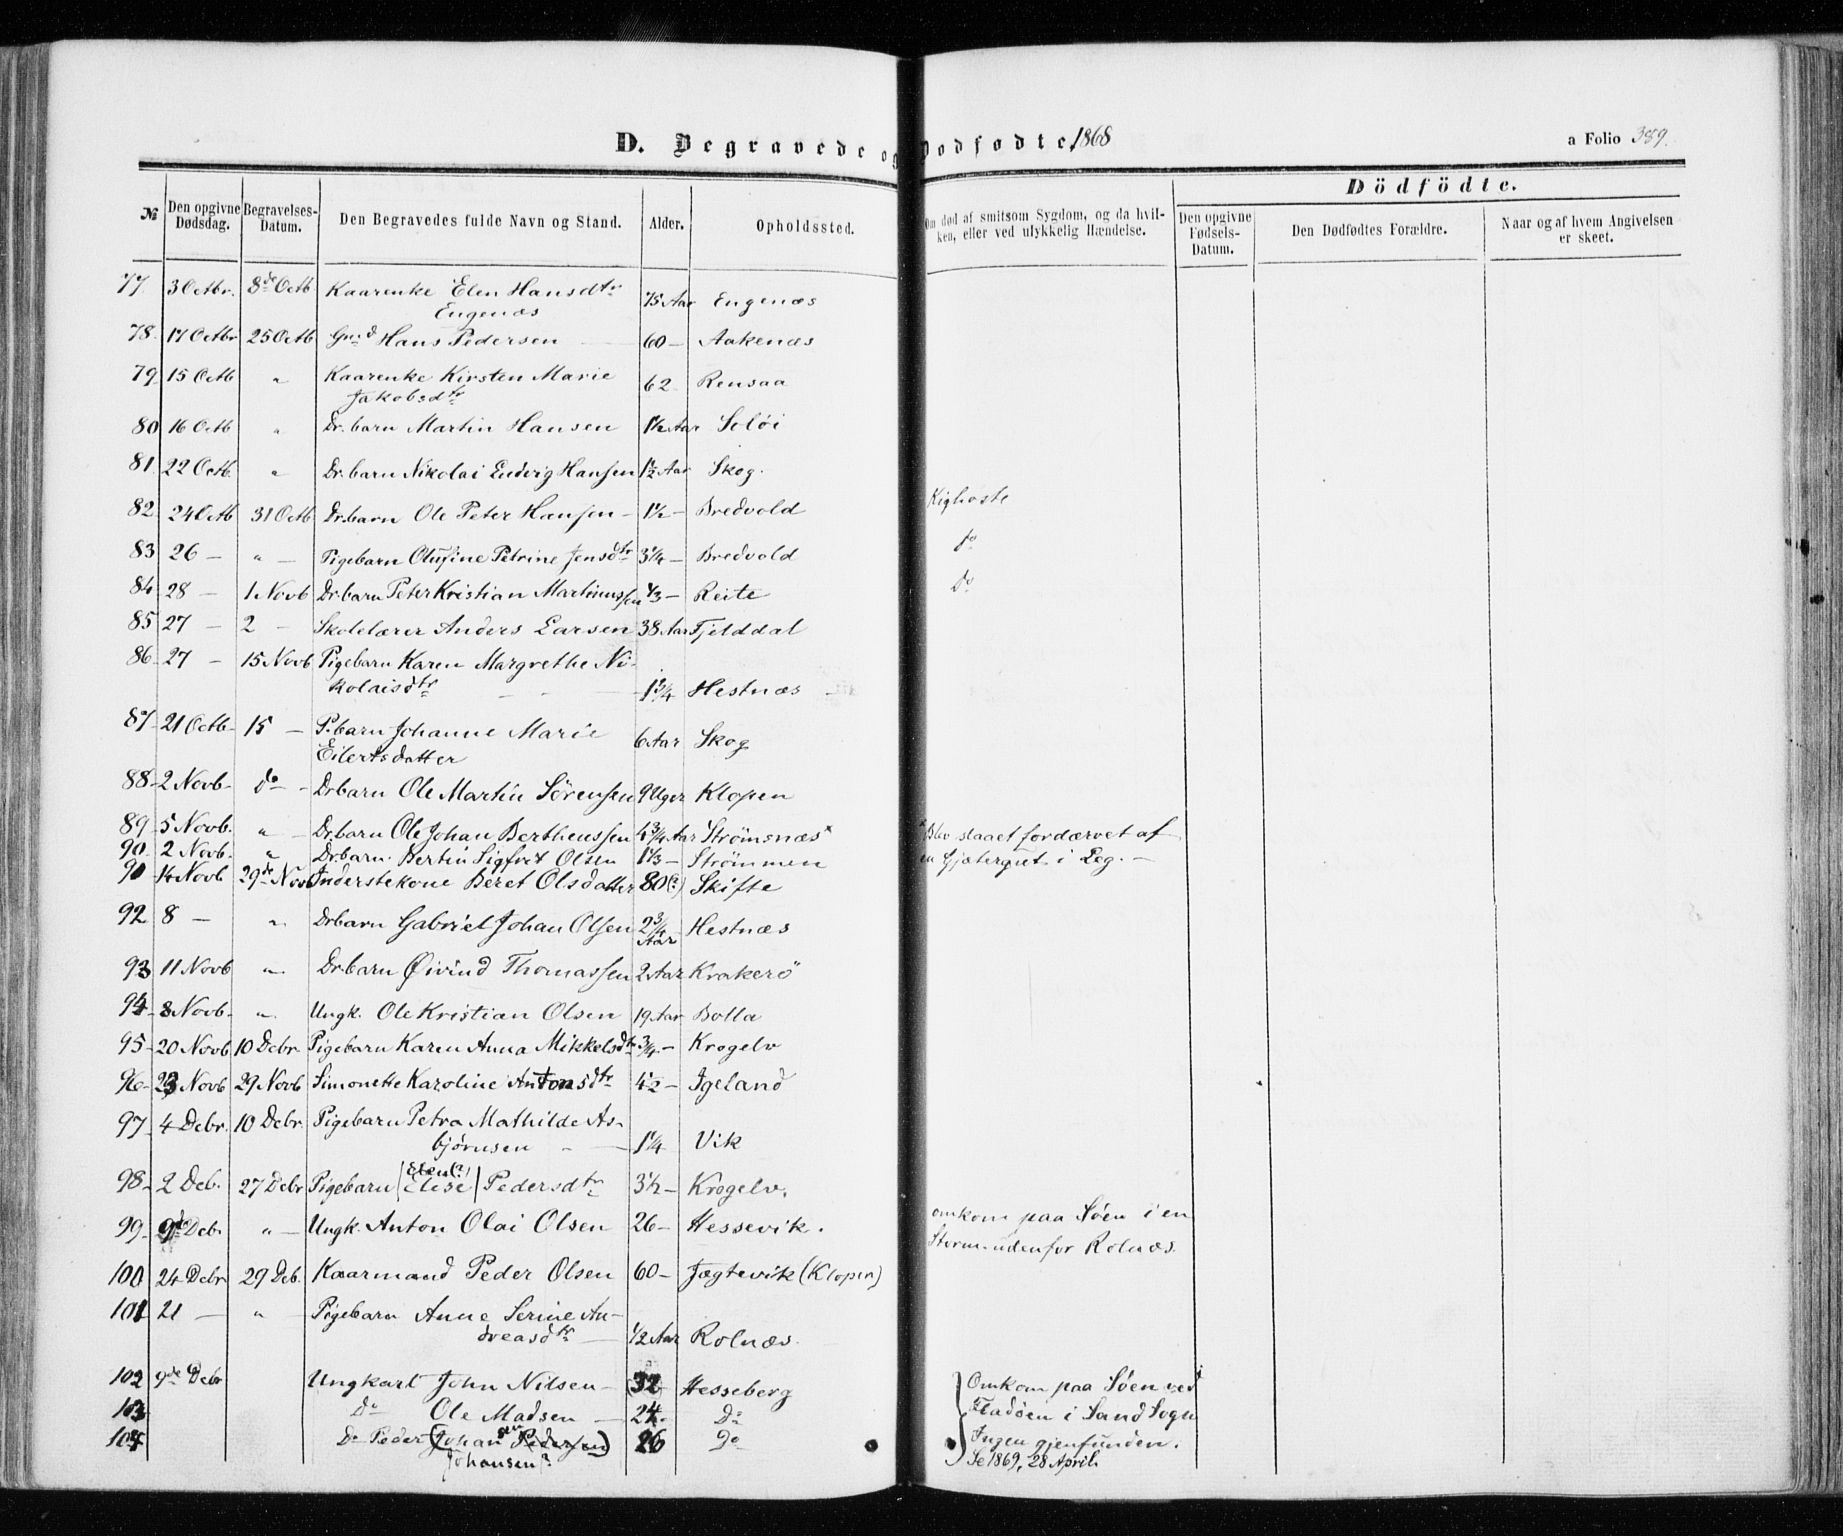 D. Begravede og Dødfødte. 1868
a Folio 389.
№ | Den opgivne Dødsdag. | Begravelses-Datum. | Den Begravedes fulde Navn og Stand. | Alder. | Opholdssted. | Om død af smitsom Sygdom, og da hvilken, eller ved ulykkelig Hændelse. | Dödfödte. | Den opgivne Fødsels-Datum. | Den Dødfødtes Forældre. | Naar og af hvem Angivelsen er skeet.
77. 3 Octbr. 8de Octb Kaarenke Elen Hansdtr 75 Aar Engenæs
Engenæs
78. 17 Octbr 25 Octb Gmd Hans Pedersen 60 — Aakenæs
79 15 Octb " Kaarenke Kirsten Marie 62 Rensaa
Jakobsdtr
80 16 Octb " Dr.barn Martin Hansen 1½ Aar Soløi
81. 22 Octb. " Dr.barn Nikolai Ludvig Hansen 1½ Aar Skog.
82 24 Octb 31 Octb Dr.barn Ole Peter Hansen — 1½ — Bredvold Kighoste
83 26 — " — Pigebarn Olufine Petrine Jensdtr 3¼ — Bredvold do
84 28 — 1 Novb Dr.barn Peter Kristian Martinussen ⅓ — Reite Do
85 27 — 2 — Skolelærer Anders Larsen 38 Aar Fjelddal
86 27 — 15 Novb Pigebarn Karen Margrethe Ni-
kolaisdtr — 1¾ Hestnæs
87 21 Octb 15 — P.barn Johanne Marie 6 Aar Skog
Eilertsdatter
88 2 Novb do — Dr.barn Ole Martin Sörensen 9 Uger Klopen
89 5 Novb. " Dr.barn Ole Johan Bertheussen 4¾ Aar Strömsnæs × × Blev slaaet fordærvet af
90 2 Novb. " Dr.barn. Bertin Sigfrit Olsen 1⅓ — Strömmen en Gjætergut i Leg. —
91 14 Novb 29de Novb Inderstekone Beret Olsdatter 80(?) Skifte
92 8 — " Dr.barn Gabriel Johan Olsen 2¾ Aar Hestnæs
93 11 Novb " Dr.barn Øivind Thomassen 2 Aar Krakerö
94 8 Novb " Ungk. Ole Kristian Olsen 19 Aar Bolla
95 20 Novb 10 Debr Pigebarn Karen Anna Mikkelsdtr ¾ — Krogelv
96 23 Novb 29 Novb Simonette Karoline Antonsdtr 4½ — Igeland
97 4 Debr. 10 Debr. Pigebarn Petra Mathilde As-
björnsen — 1¼ Vik
98 2 Deb. 27 Debr Pigebarn (Elise) Elen(?) Pedersdtr 3½ — Krogelv.
99 9de Deb. " — Ungk. Anton Olai Olsen 26 — Hessevik. omkom paa Söen i en
Storm udenfor Rolnæs.
100 24 Debr 29 Deb. Kaarmand Peder Olsen 60 — Jægtevik (Klopen)
101 21 — " — Pigebarn Anne Serine An-
dreasdtr ½ Aar Rolnæs.
102 9de Debr Ungkarl John Nilsen — 32 Hesseberg Omkom paa Söen ved
103 Do Ole Madsen — 24 Do Fladöen i Sand Sogn
104 Do Peder (Johansen Pedersen) 26 Do Ingen gjenfunden.
Johansen? Se 1869, 28 April.